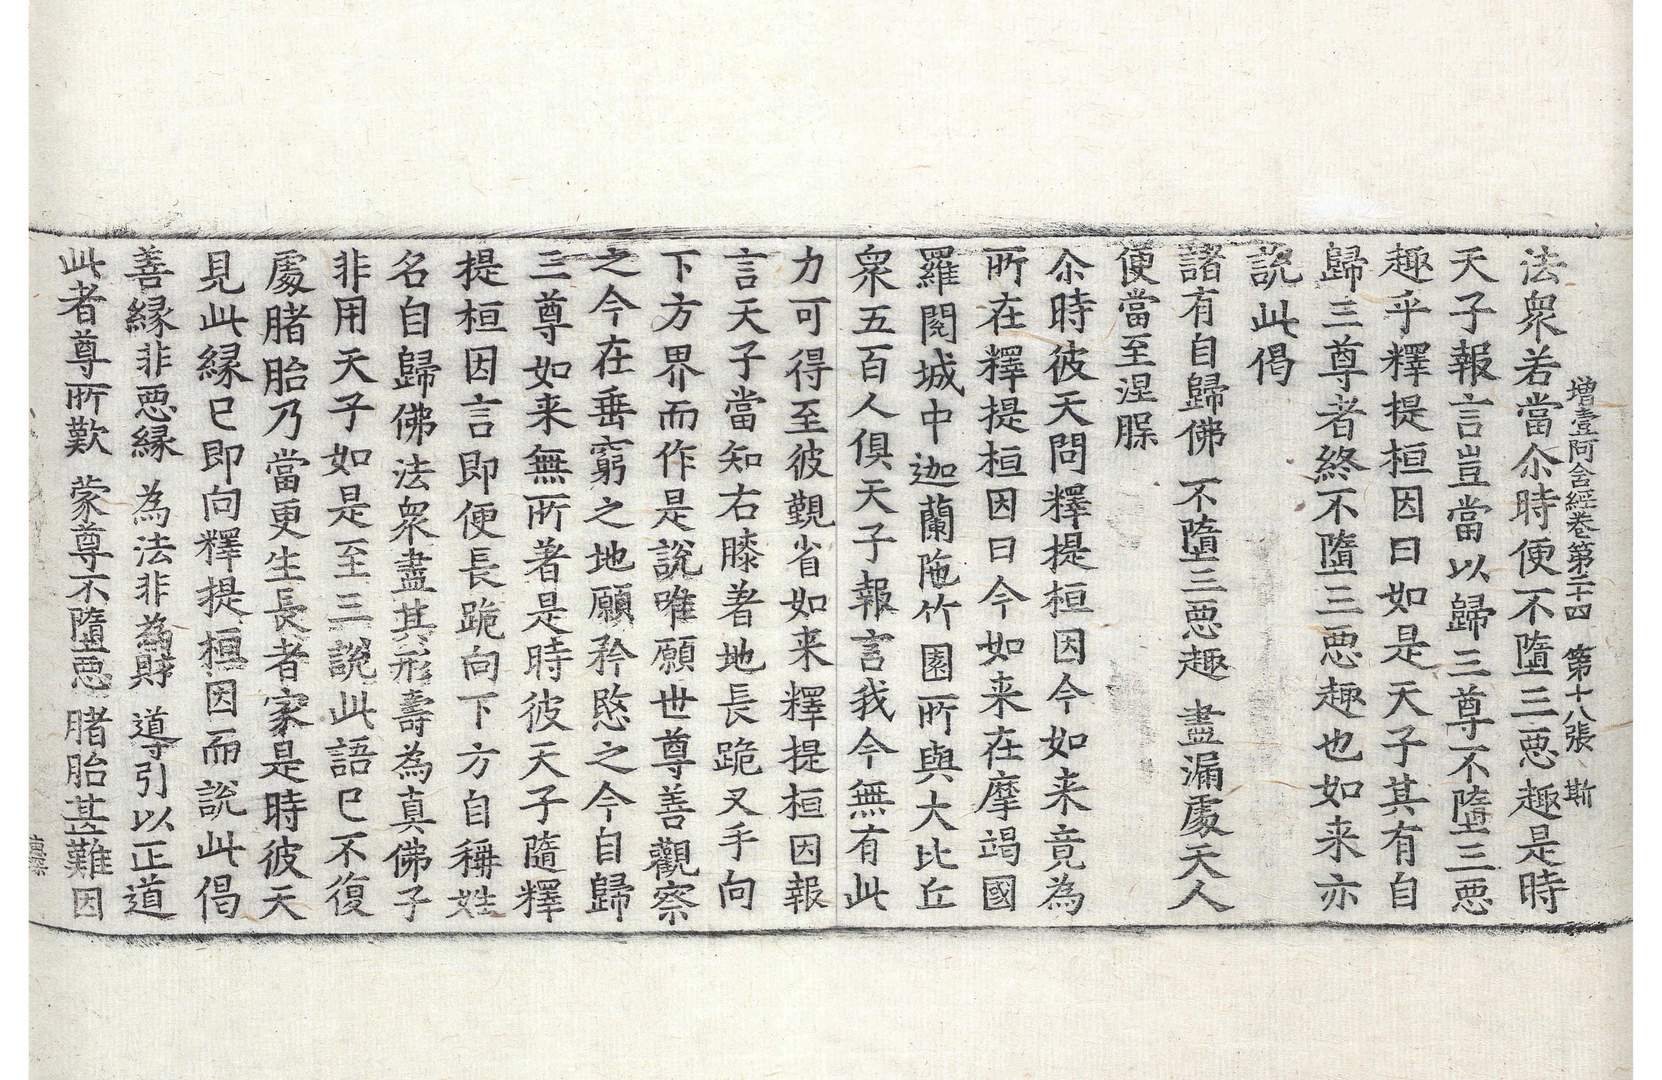 增壹阿含經卷第二十四　第十八張　斯
法衆若當尒時便不墮三惡趣是時
天子報言豈當以歸三尊不墮三惡
趣乎釋提桓因曰如是天子其有自
歸三尊者終不墮三惡趣也如来亦
說此偈
諸有自歸佛　不墮三惡趣　盡漏處天人
便當至涅脲
尒時彼天問釋提桓因今如来竟為
所在釋提桓因曰今如来在摩竭國
羅閱城中迦蘭陁竹園所與大比丘
衆五百人俱天子報言我今無有此
力可得至彼覲省如来釋提桓因報
言天子當知右膝著地長跪叉手向
下方界而作是說唯願世尊善觀察
之今在垂窮之地願矜愍之今自歸
三尊如来無所著是時彼天子隨釋
提桓因言即便長跪向下方自稱姓
名自歸佛法衆盡其形壽為真佛子
非用天子如是至三說此語已不復
處腊胎乃當更生長者家是時彼天
見此緣已即向釋提桓因而說此偈
善緣非惡緣　為法非為財　導引以正道
此者尊所歎　蒙尊不墮惡　腊胎甚難因